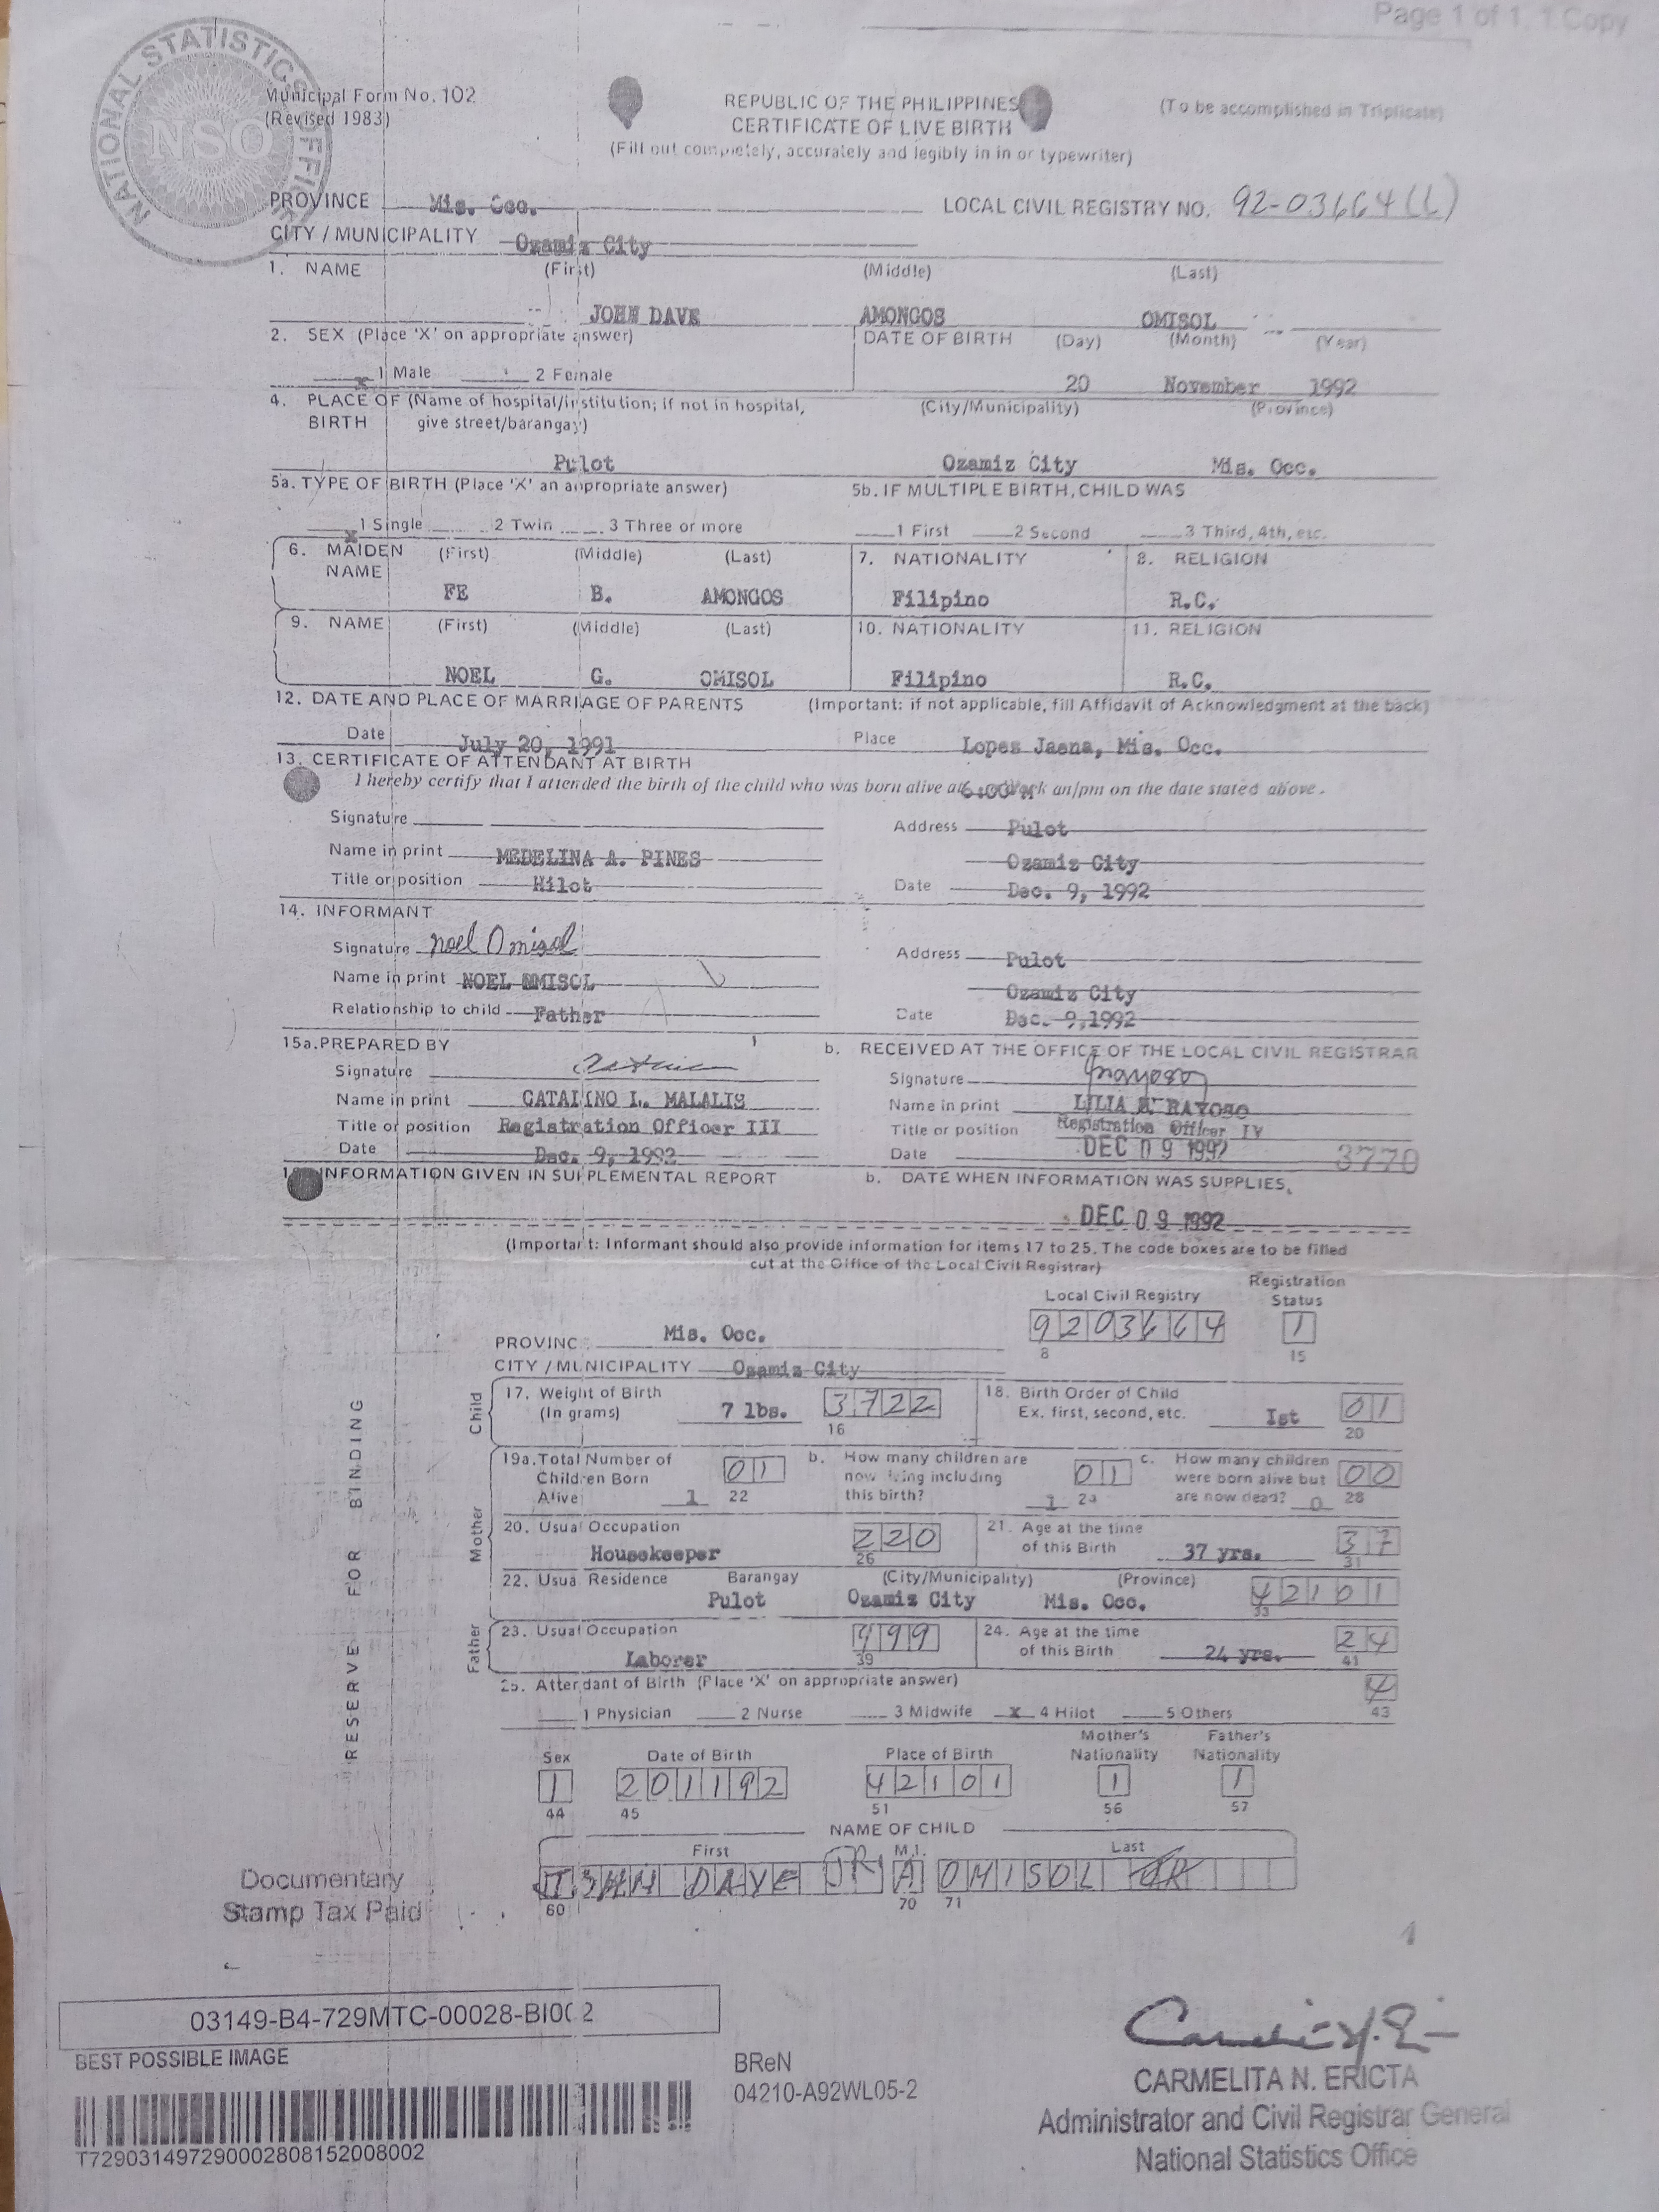 Page 1 of 1, 1 Copy
NATIONAL STATISTICS OFFICE
NSO
Municipal Form No. 102
(Revised 1983)
REPUBLIC OF THE PHILIPPINES
CERTIFICATE OF LIVE BIRTH
(Fill out completely, accurately and legibly in in or typewriter)
(To be accomplished in Triplicate)
PROVINCE Mis. Occ. LOCAL CIVIL REGISTRY NO. 92-03664
CITY / MUNICIPALITY Ozamiz City
1. NAME (First) (Middle) (Last)
JOHN DAVE AMONGOS OMISOL
2. SEX (Place 'X' on appropriate answer) DATE OF BIRTH (Day) (Month) (Year)
x 1 Male 2 Female 20 November 1992
4. PLACE OF (Name of hospital/institution; if not in hospital, (City/Municipality) (Province)
BIRTH give street/barangay)
Pulot Ozamiz City Mis. Occ.
5a. TYPE OF BIRTH (Place 'X' an appropriate answer) 5b. IF MULTIPLE BIRTH, CHILD WAS
x 1 Single 2 Twin 3 Three or more 1 First 2 Second 3 Third, 4th, etc.
6. MAIDEN (First) (Middle) (Last) 7. NATIONALITY 8. RELIGION
NAME
FE B. AMONGOS Filipino R.C.
9. NAME (First) (Middle) (Last) 10. NATIONALITY 11. RELIGION
NOEL G. OMISOL Filipino R.C.
12. DATE AND PLACE OF MARRIAGE OF PARENTS (Important: if not applicable, fill Affidavit of Acknowledgment at the back)
Date July 20, 1991 Place Lopes Jaena, Mis. Occ.
13. CERTIFICATE OF ATTENDANT AT BIRTH
I hereby certify that I attended the birth of the child who was born alive at 6:00 an/pm on the date stated above.
Signature Address Pulot
Name in print MEDELINA A. PINES Ozamis City
Title or position Hilot Date Dec. 9, 1992
14. INFORMANT
Signature Noel Omisol Address Pulot
Name in print NOEL OMISOL Ozamis City
Relationship to child Father Date Dec. 9,1992
15a. PREPARED BY b. RECEIVED AT THE OFFICE OF THE LOCAL CIVIL REGISTRAR
Signature Signature
Name in print CATALINO L. MALALIS Name in print LILIA M. RAYOSO
Title or position Registration Officer III Title or position Registration Officer IV
Date Dec. 9, 1992 Date DEC 09 1992 3770
INFORMATION GIVEN IN SUPPLEMENTAL REPORT b. DATE WHEN INFORMATION WAS SUPPLIES,
DEC 09 1992
(Important: Informant should also provide information for items 17 to 25. The code boxes are to be filled
out at the Office of the Local Civil Registrar)
Local Civil Registry Registration Status
PROVINC Mis. Occ. 9203664 1
8 15
CITY / MUNICIPALITY Ozamiz City
Child
17. Weight of Birth 7 lbs. 3722 18. Birth Order of Child Ist 01
(In grams) 16 Ex. first, second, etc. 20
Mother
19a. Total Number of 01 b. How many children are 01 c. How many children 00
Children Born now living including were born alive but
Alive 1 22 this birth? 1 24 are now dead? 0 28
20. Usual Occupation 220 21. Age at the time 37
Housekeeper 26 of this Birth 37 yrs. 31
22. Usual Residence Barangay (City/Municipality) (Province) 42101
Pulot Ozamis City Mis. Occ. 33
Father
23. Usual Occupation 999 24. Age at the time 24
Laborer 39 of this Birth 24 yrs. 41
25. Attendant of Birth (Place 'X' on appropriate answer) 4
1 Physician 2 Nurse 3 Midwife x 4 Hilot 5 Others 43
Sex Date of Birth Place of Birth Mother's Nationality Father's Nationality
1 201192 42101 1 1
44 45 51 56 57
NAME OF CHILD
First M.I. Last
JOHN DAVE JR A OMISOL
60 70 71
RESERVE FOR BINDING
Documentary
Stamp Tax Paid
03149-B4-729MTC-00028-BI002
BEST POSSIBLE IMAGE
T729031497290002808152008002
BReN
04210-A92WL05-2
CARMELITA N. ERICTA
Administrator and Civil Registrar General
National Statistics Office